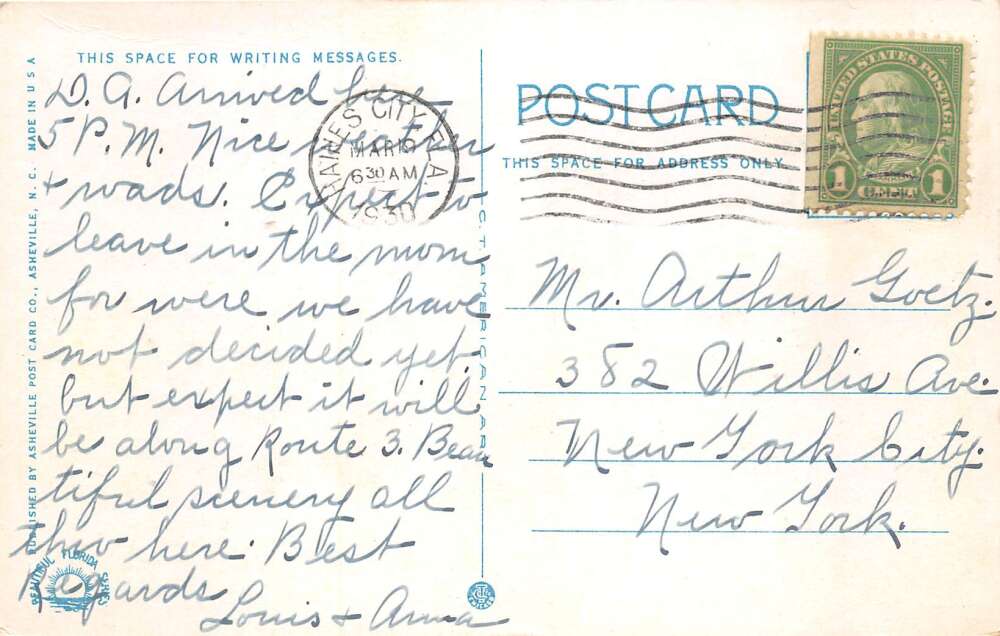 THIS SPACE FOR WRITING MESSAGES.
D. A. Arrived here
5 P.M. Nice weather
+ roads. Expect to
leave in the morn
for were we have
not decided yet.
but expect it will
be along Route 3. Beau
tiful scenery all
thro here. Best
Regards
Louis + Anna
PUBLISHED BY ASHEVILLE POST CARD CO., ASHEVILLE, N. C. MADE IN U S A
BEAUTIFUL FLORIDA SERIES
C. T. AMERICAN ART
HAINES CITY, FLA.
MAR
6 30 AM
1930
POST CARD
THIS SPACE FOR ADDRESS ONLY
UNITED STATES POSTAGE
1 1
Mr. Arthur Goetz.
382 Willis Ave.
New York City.
New York.